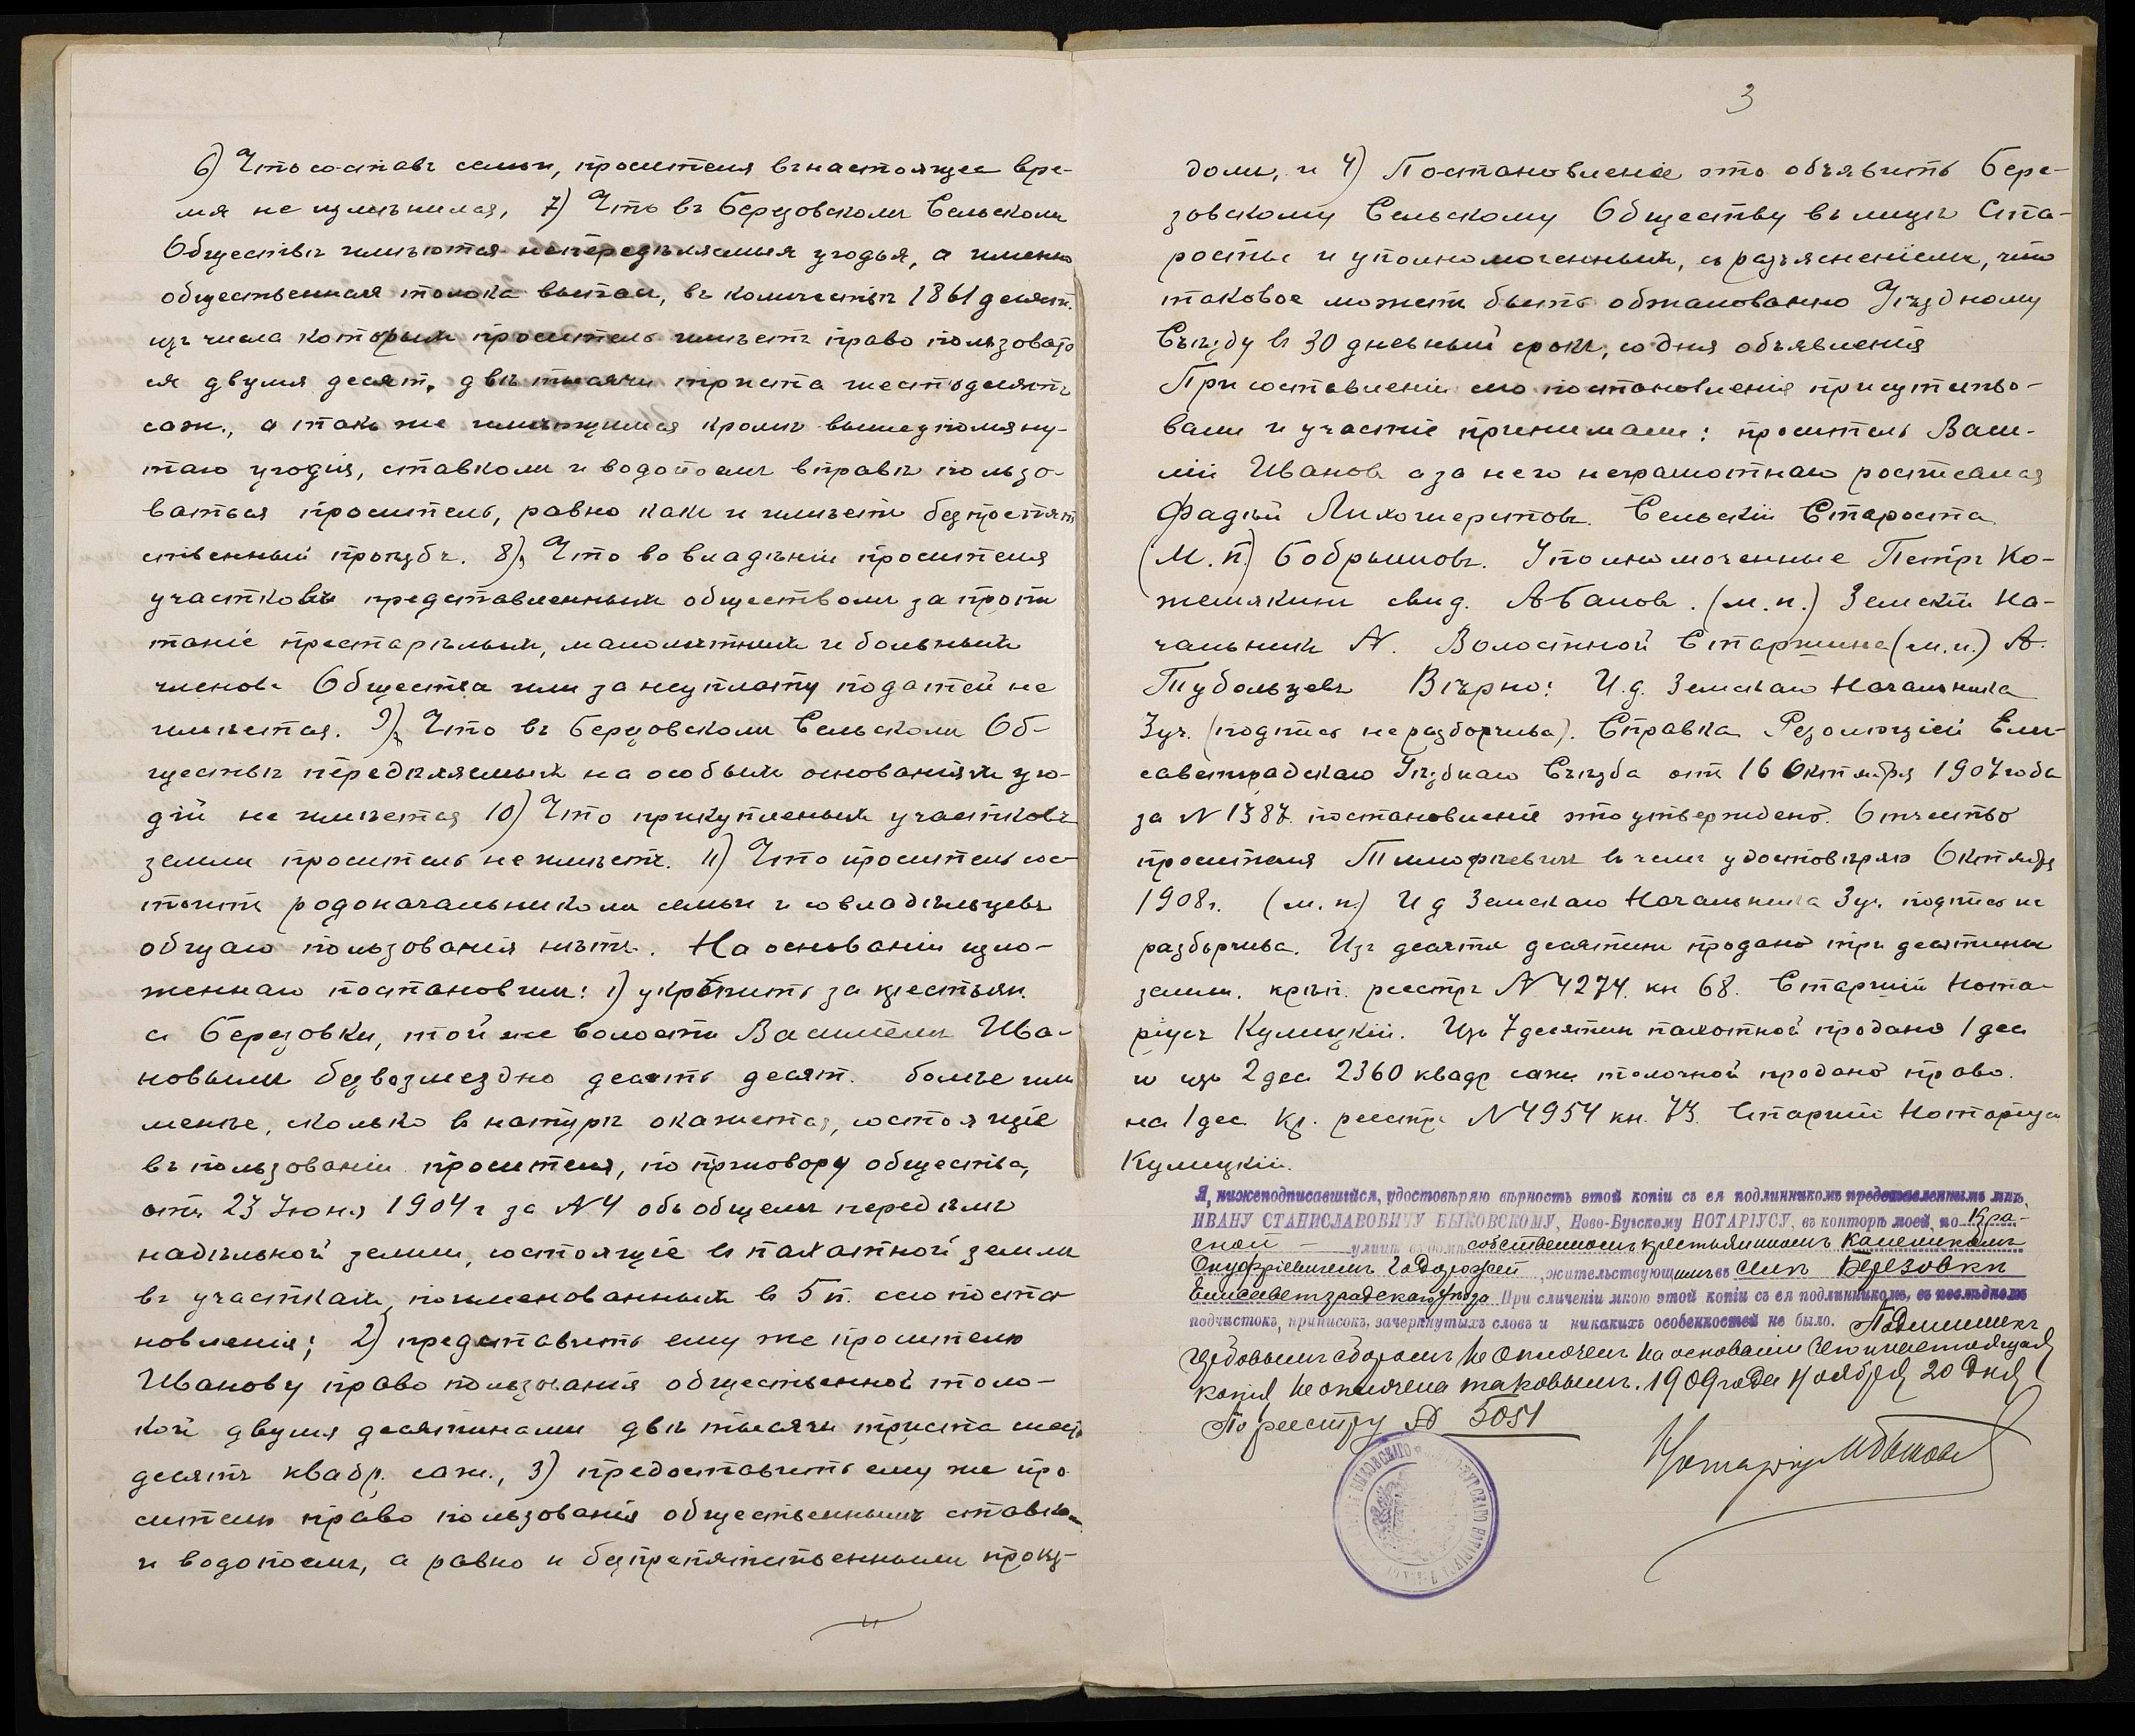 6) Что составъ семьи, просителя въ настоящее вре-
мя не измѣнился, 7) Что въ Березовскомъ Сельскомъ
Обществѣ имѣются непередѣляемыя угодья, а именно
общественная толока выпас, въ количествѣ 1861 десят.
изъ числа которыхъ проситель имѣетъ право пользоватъ
ся двумя десят. двѣ тысячи триста шестьдесятъ
саж., а такъ же имѣющимися кромѣ вышеупомяну-
таго угодія, ставкомъ и водопоемъ вправѣ пользо-
ваться проситель, равно какъ и имѣетъ безпрепят
ственный проѣздъ. 8) Что во владѣніи просителя
участковъ представленныхъ обществомъ за пропи
таніе престарѣлыхъ, малолѣтнихъ и больныхъ
членовъ Общества или за неуплату податей не
имѣется. 9) Что въ Березовскомъ Сельскомъ Об-
ществѣ передѣляемыхъ на особыхъ основаніяхъ уго-
дій не имѣется 10) Что прикупленныхъ участковъ
земли проситель не имѣетъ. 11) Что проситель сос-
тоитъ родоначальникомъ семьи и совладѣльцевъ
общаго пользованія нѣтъ. На основаніи изло-
женнаго постановилъ: 1) укрѣпить за крестьян.
с. Березовки, той же волости Василіемъ Ива-
новымъ безвозмездно десять десят. болѣе или
менѣе, сколько в натурѣ окажется, состоящіе
въ пользованіи просителя, по приговору общества,
отъ 23 Іюня 1904 г за N 4 объ общемъ передѣлѣ
надѣльной земли, состоящіе въ пахатной земли
въ участкахъ, поименованныхъ в 5 п. сего поста
новленія; 2) предоставить ему же просителю
Иванову право пользованія общественной толо-
кой двумя десятинами двѣ тысячи триста шест
десятъ квадр. саж., 3) предоставить ему же про
сителю право пользованія общественнымъ ставкомъ
и водопоемъ, а равно и безпрепятственнымъ проѣз-
3
домъ, и 4) Постановленіе это объявить Бере-
зовскому Сельскому Обществу въ лицѣ Ста-
росты и уполномоченныхъ, съ разъясненіемъ, что
таковое можетъ быть обжалованно Уѣздному
Съѣзду в 30 дневный срокъ, со дня объявленія
При составленіи сего постановленія присутство-
вали и участіе принимали: проситель Васи-
лій Ивановъ а за него неграмотнаго росписался
Фадѣй Лихошерстовъ. Сельскій Староста
(М. п.) Бобрышовъ. Уполномоченные Петръ Ко-
жемякинъ свид. Абаловъ. (м. п.) Земскій На-
чальникъ N. Волостной Старшина (м. п.) А.
Тубольцевъ Вѣрно: И. д. Земскаго Начальника
3 уч. (подпись неразборчива). Справка Резолюціей Ели-
саветградскаго Уѣзднаго Съѣзда отъ 16 Октября 1907 года
за N 1387 постановленіе это утверждено. Отчество
просителя Тимофѣевичъ въ чемъ удостовѣряю Октября
1908 г. (м. п.) И д Земскаго Начальника 3 уч. подпись не
разборчива. Изъ десяти десятинъ продано три десятины
земли. крѣп. реестръ N 4274. кн 68. Старшій Нота-
ріусъ Кулицкій. Изъ 7 десятин пахотной продано 1 дес
и изъ 2 дес 2360 квадр саж толочной продано право.
на 1 дес. Кр. реестръ N 4954 кн. 73. Старшій Нотаріусъ
Кулицкій.
Я, нижеподписавшійся, удостовѣряю вѣрность этой копіи съ ея подлинникомъ представленнымъ мнѣ,
ИВАНУ СТАНИСЛАВОВИЧУ БЫКОВСКОМУ, Ново-Бугскому НОТАРІУСУ, въ конторѣ моей, по Кра-
сной — улицѣ въ домѣ собственномъ крестьяниномъ
Онуфріевичемъ жительствующимъ въ селѣ Березовки
Елисаветградскаго уѣзда При сличеніи мною этой копіи съ ея подлинникомъ, въ послѣднемъ
подчистокъ, приписокъ, зачеркнутыхъ словъ и никакихъ особенностей не было. Подлинникъ
гербовымъ сборомъ не оплоченъ на основаніи чего и настоящая
копія не оплочена таковымъ. 1909 года Ноября 20 дня
По реестру № 5051
Нотаріусъ И Быковскій